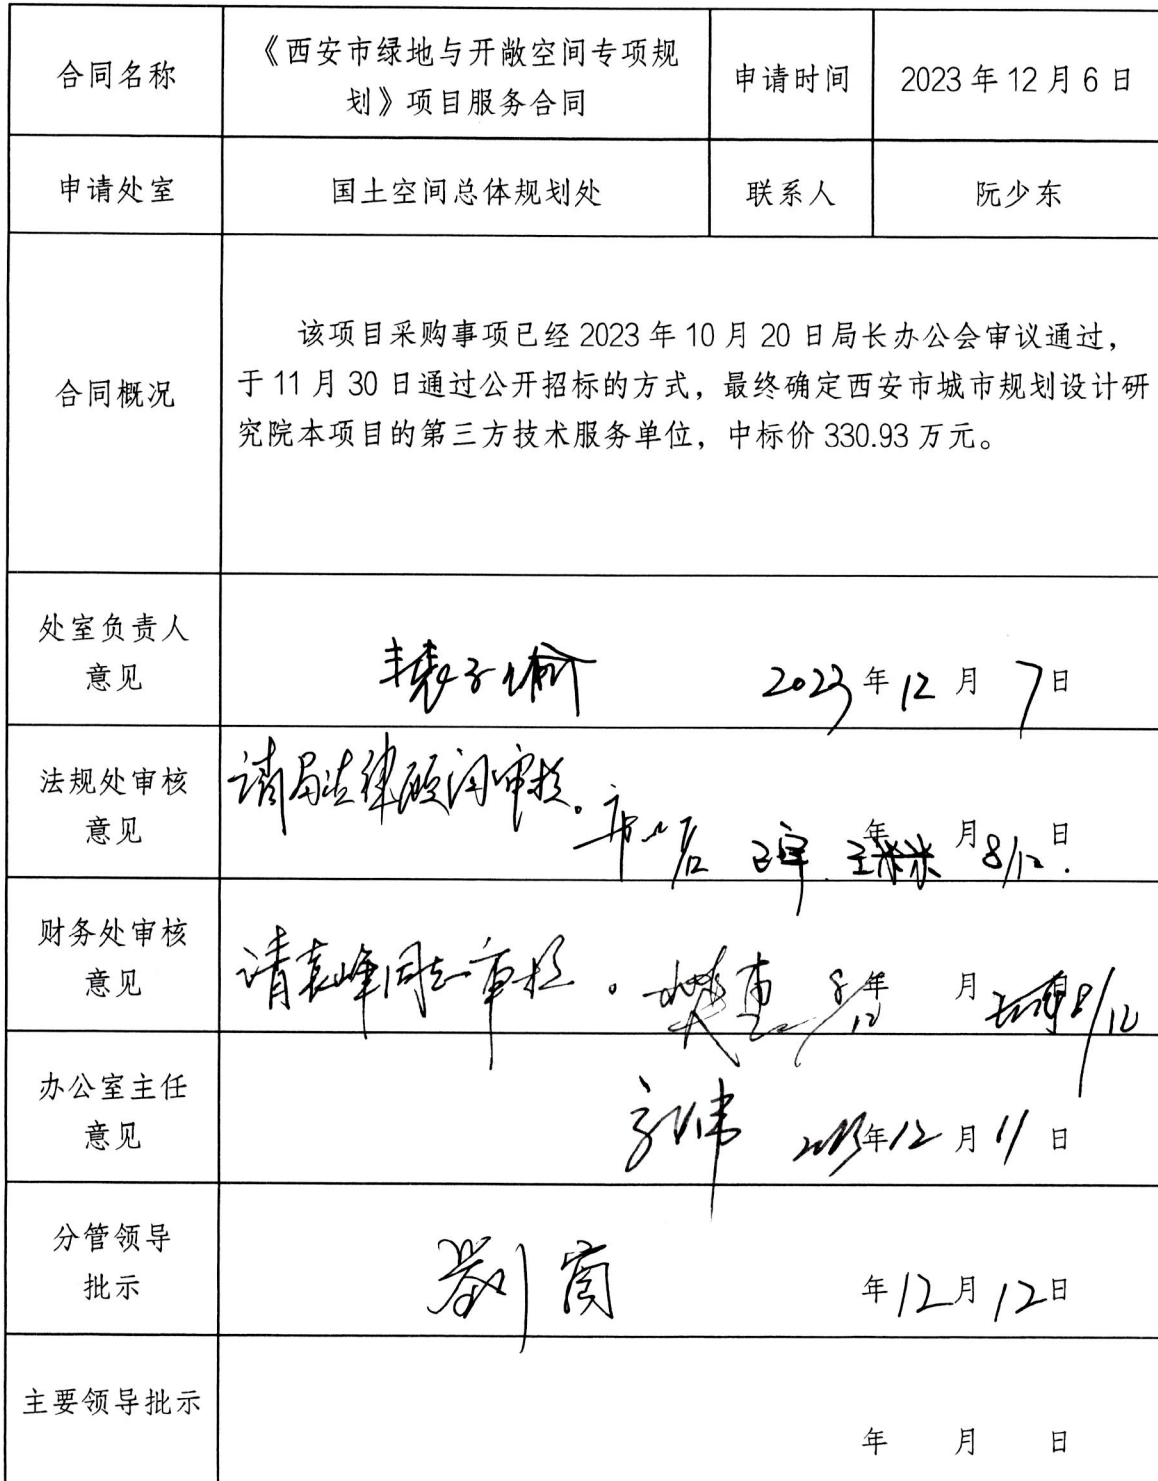 合同名称
《西安市绿地与开敞空间专项规
划》项目服务合同
申请时间
2023年12月6日
申请处室
国土空间总体规划处
联系人
阮少东
合同概况
该项目采购事项已经2023年10月20日局长办公会审议通过，
于11月30日通过公开招标的方式，最终确定西安市城市规划设计研
究院本项目的第三方技术服务单位，中标价330.93万元。
处室负责人
意见
2023年12月7日
法规处审核
意见
请局法律顾问审核。
年 月 日
8/12.
财务处审核
意见
请袁峰同志审核。
8/12
年 月
8/12
办公室主任
意见
2023年12月11日
分管领导
批示
年12月12日
主要领导批示
年 月 日